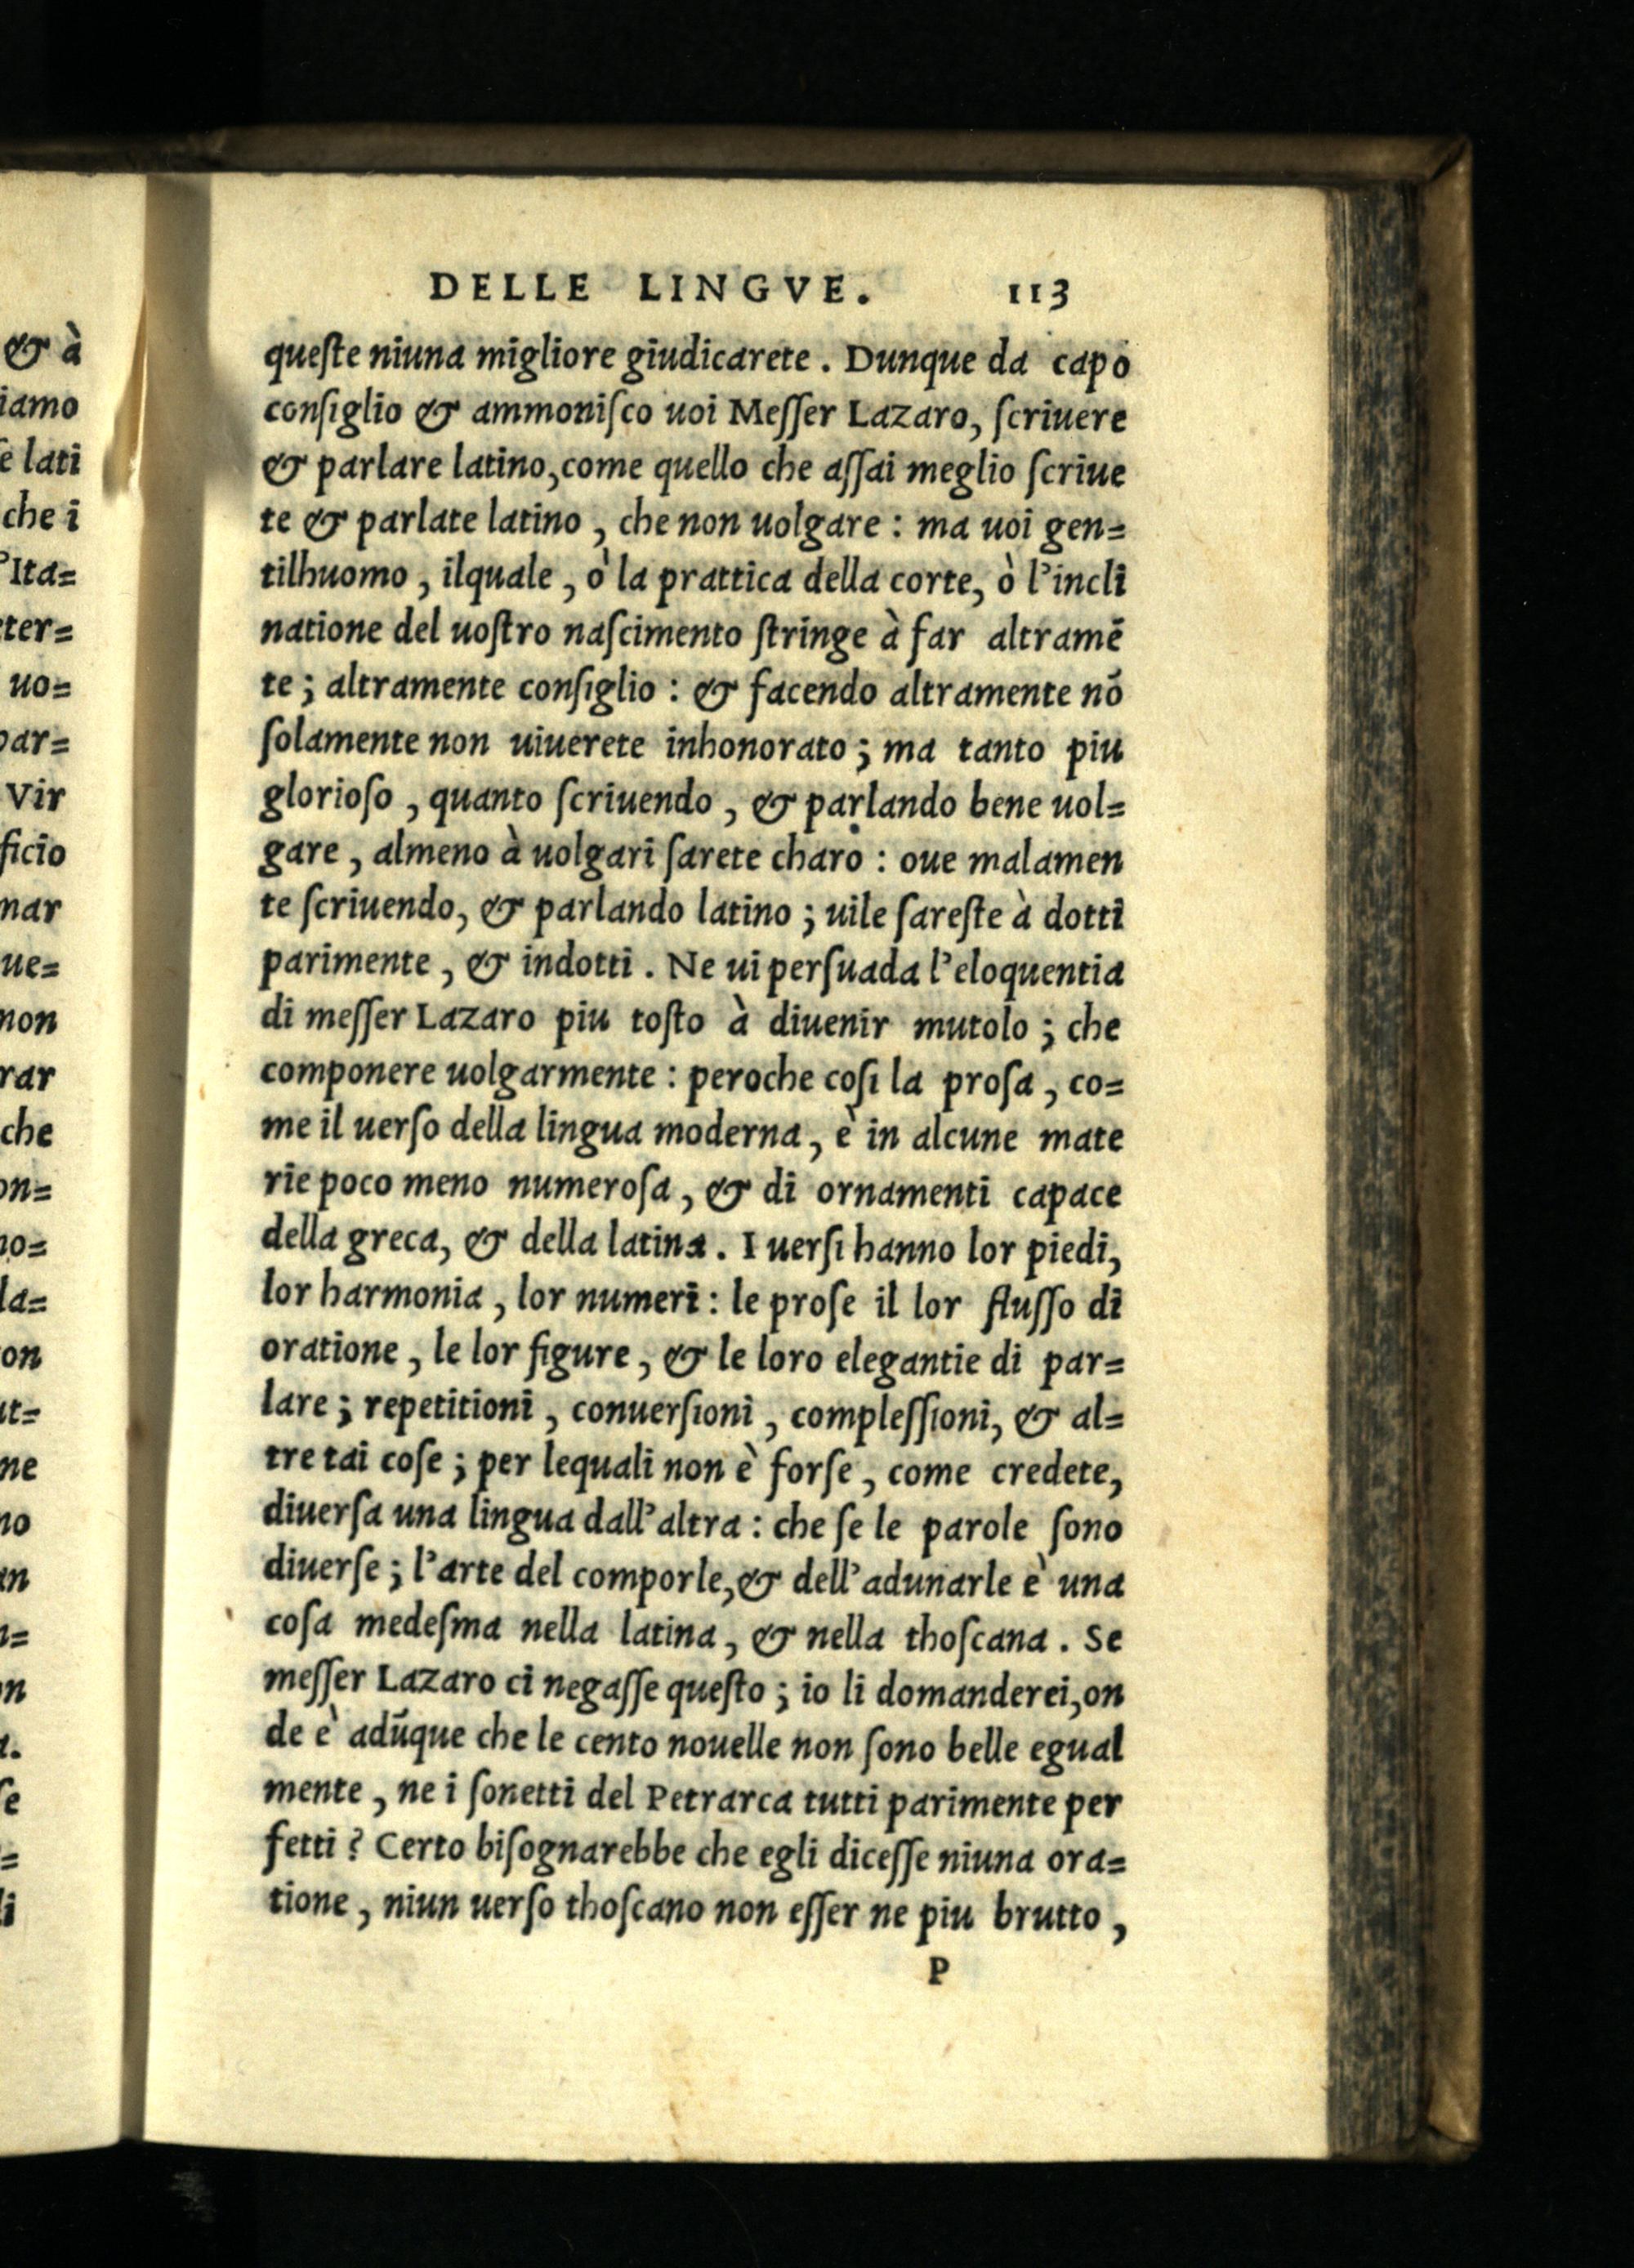 DELLE LINGVE. 113
queſte niuna migliore giudicarete. Dunque da capo
conſiglio & ammoniſco uoi Meſſer Lazaro, ſcriuere
& parlare latino, come quello che aſſai meglio ſcriue
te & parlate latino, che non uolgare: ma uoi gen=
tilhuomo, ilquale, ò la prattica della corte, ò l'incli
natione del uoſtro naſcimento ſtringe à far altramē
te; altramente conſiglio: & facendo altramente nō
ſolamente non uiuerete inhonorato; ma tanto piu
glorioſo, quanto ſcriuendo, & parlando bene uol=
gare, almeno à uolgari ſarete charo: oue malamen
te ſcriuendo, & parlando latino; uile ſareſte à dotti
parimente, & indotti. Ne ui perſuada l'eloquentia
di meſſer Lazaro piu toſto à diuenir mutolo; che
componere uolgarmente: peroche coſi la proſa, co=
me il uerſo della lingua moderna, è in alcune mate
rie poco meno numeroſa, & di ornamenti capace
della greca, & della latina. I uerſi hanno lor piedi,
lor harmonia, lor numeri: le proſe il lor fluſſo di
oratione, le lor figure, & le loro elegantie di par=
lare; repetitioni, conuerſioni, compleſſioni, & al=
tre tai coſe; per lequali non è forſe, come credete,
diuerſa una lingua dall'altra: che ſe le parole ſono
diuerſe; l'arte del comporle, & dell'adunarle è una
coſa medeſma nella latina, & nella thoſcana. Se
meſſer Lazaro ci negaſſe queſto; io li domanderei, on
de è adūque che le cento nouelle non ſono belle egual
mente, ne i ſonetti del Petrarca tutti parimente per
fetti? Certo biſognarebbe che egli diceſſe niuna ora=
tione, niun uerſo thoſcano non eſſer ne piu brutto,
P
& à
iamo
e lati
che i
'Ita=
ter=
uo=
par=
Vir
ficio
nar
ue=
non
rar
che
on=
no=
la=
on
ut=
ne
no